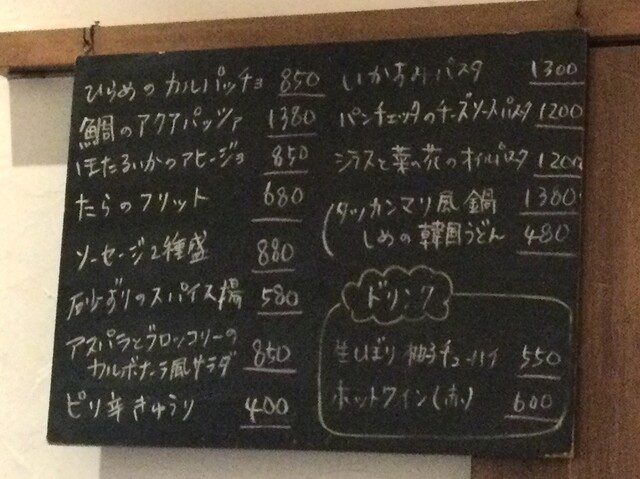 ひらめのカルパッチョ 850
鯛のアクアパッツァ 1380
ほたるいかのアヒージョ 850
たらのフリット 680
ソーセージ2種盛 880
砂ずりのスパイス揚 580
アスパラとブロッコリーの
カルボナーラ風サラダ 850
ピリ辛きゅうり 400
いかすみパスタ 1300
パンチェッタのチーズソースパスタ 1200
シラスと菜の花のオイルパスタ 1200
タッカンマリ風鍋 1380
しめの韓国うどん 480
ドリンク
生しぼり柚子チューハイ 550
ホットワイン(赤) 600